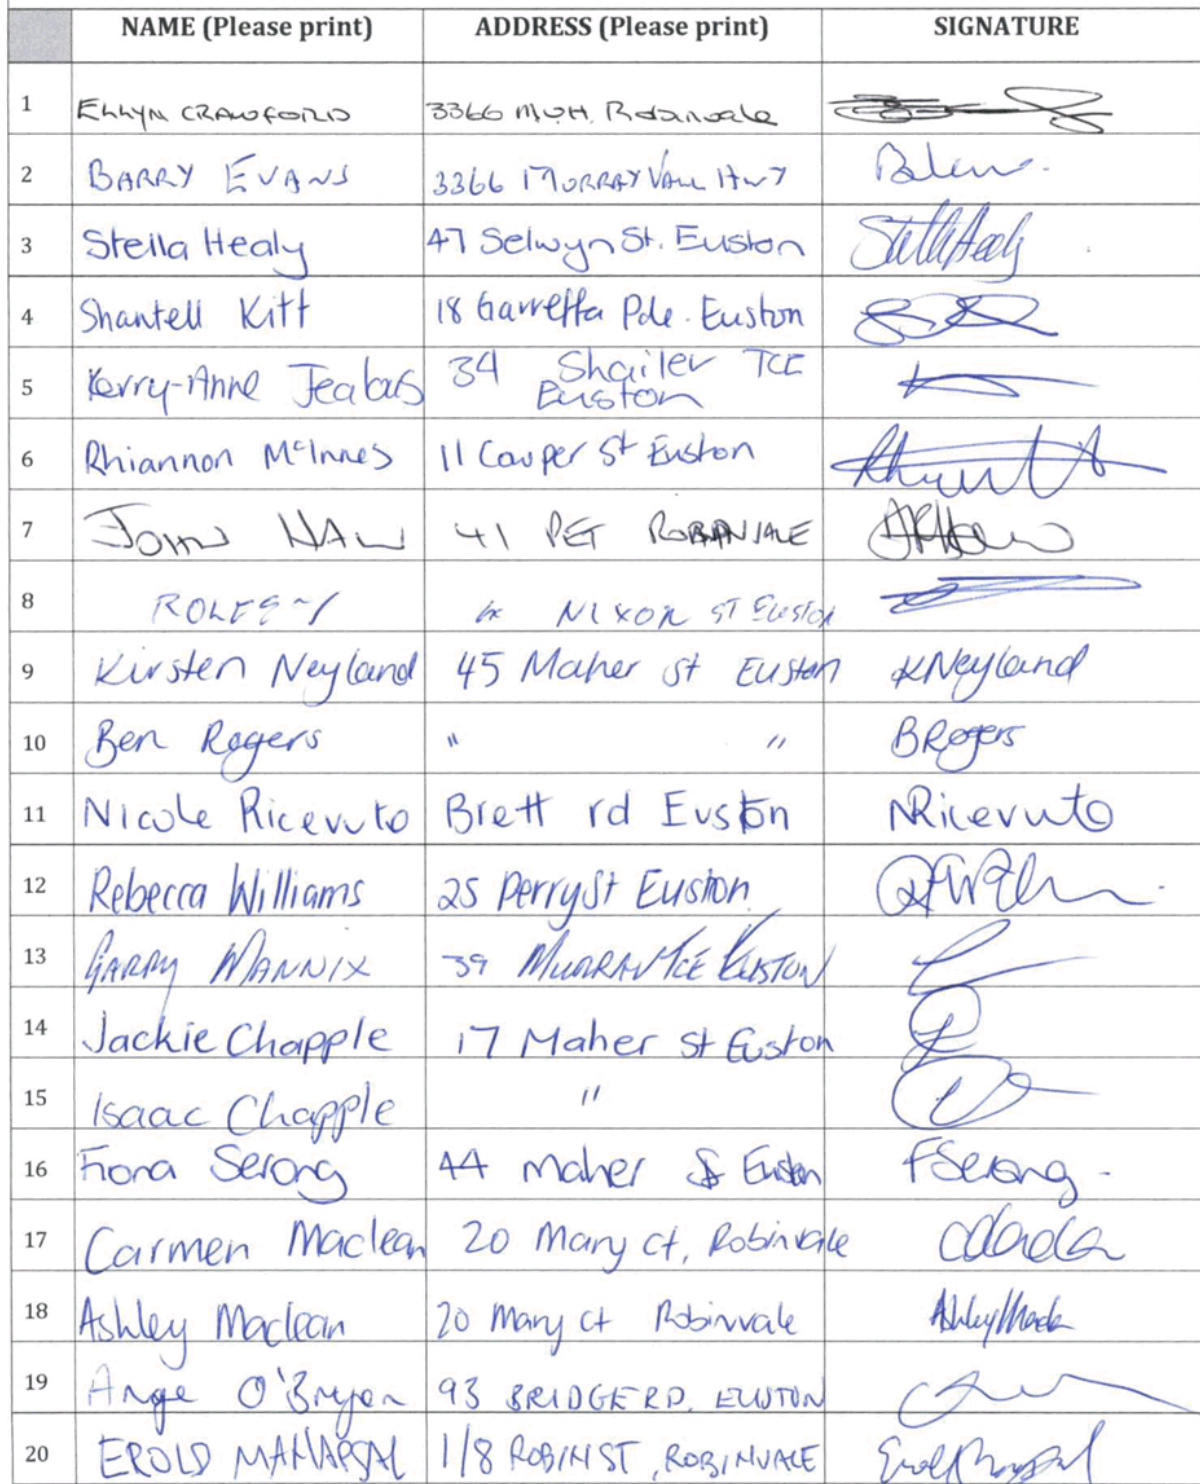 NAME (Please print) ADDRESS (Please print) SIGNATURE
1 ELLYN CRAWFORD 3366 M.V.H. Robinvale
2 BARRY EVANS 3366 MURRAY VALL HWY
3 Stella Healy 47 Selwyn St. Euston Stella Healy
4 Shantell Kitt 18 Garretta Pde. Euston
5 Kerry-Anne Jealous 34 Shailer TCE
Euston
6 Rhiannon McInnes 11 Cowper St Euston
7 JOHN HAW 41 PET ROBINVALE
8 NIXON ST Euston
9 Kirsten Neyland 45 Maher st Euston KNeyland
10 Ben Rogers " " BRogers
11 Nicole Ricevuto Brett rd Euston NRicevuto
12 Rebecca Williams 25 Perry St Euston
13 GARRY MANNIX 39 MURRAY TCE EUSTON
14 Jackie Chapple 17 Maher st Euston
15 Isaac Chapple "
16 Fiona Serong 44 Maher St Euston FSerong
17 Carmen Maclean 20 Mary ct, Robinvale
18 Ashley Maclean 20 Mary ct Robinvale
19 Ange O'Bryan 93 BRIDGE RD. EUSTON
20 EROLD 1/8 ROBIN ST, ROBINVALE